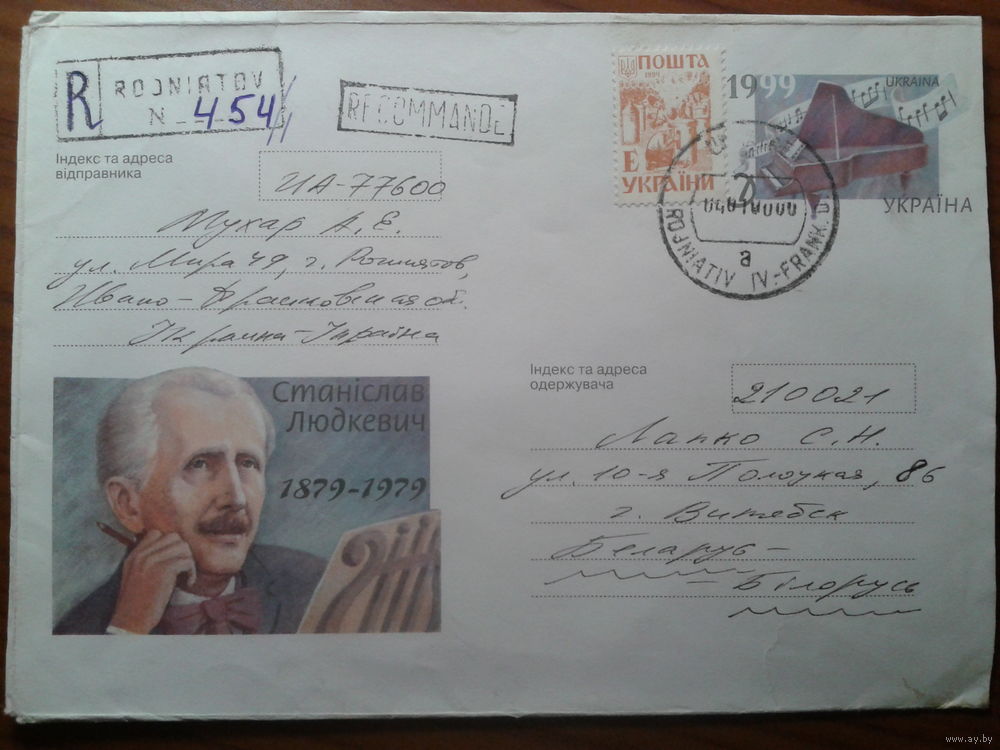 R ROJNIATOV
N 454
RECOMMANDE
Індекс та адреса
відправника
UA-77600
Мухар А. Е.
ул. Мира 49, г. Рожнятов,
Ивано-Франковская об.
Украина-Україна
ПОШТА
1994
Е
УКРАЇНИ
1999
UKRAINA
УКРАЇНА
ROJNIATIV IV.-FRANK.
a
Станіслав
Людкевич
1879-1979
Індекс та адреса
одержувача
210021
Лапко С. Н.
ул. 10-я Полоцкая, 86
г. Витебск
Беларусь-
-Білорусь
www.ay.by